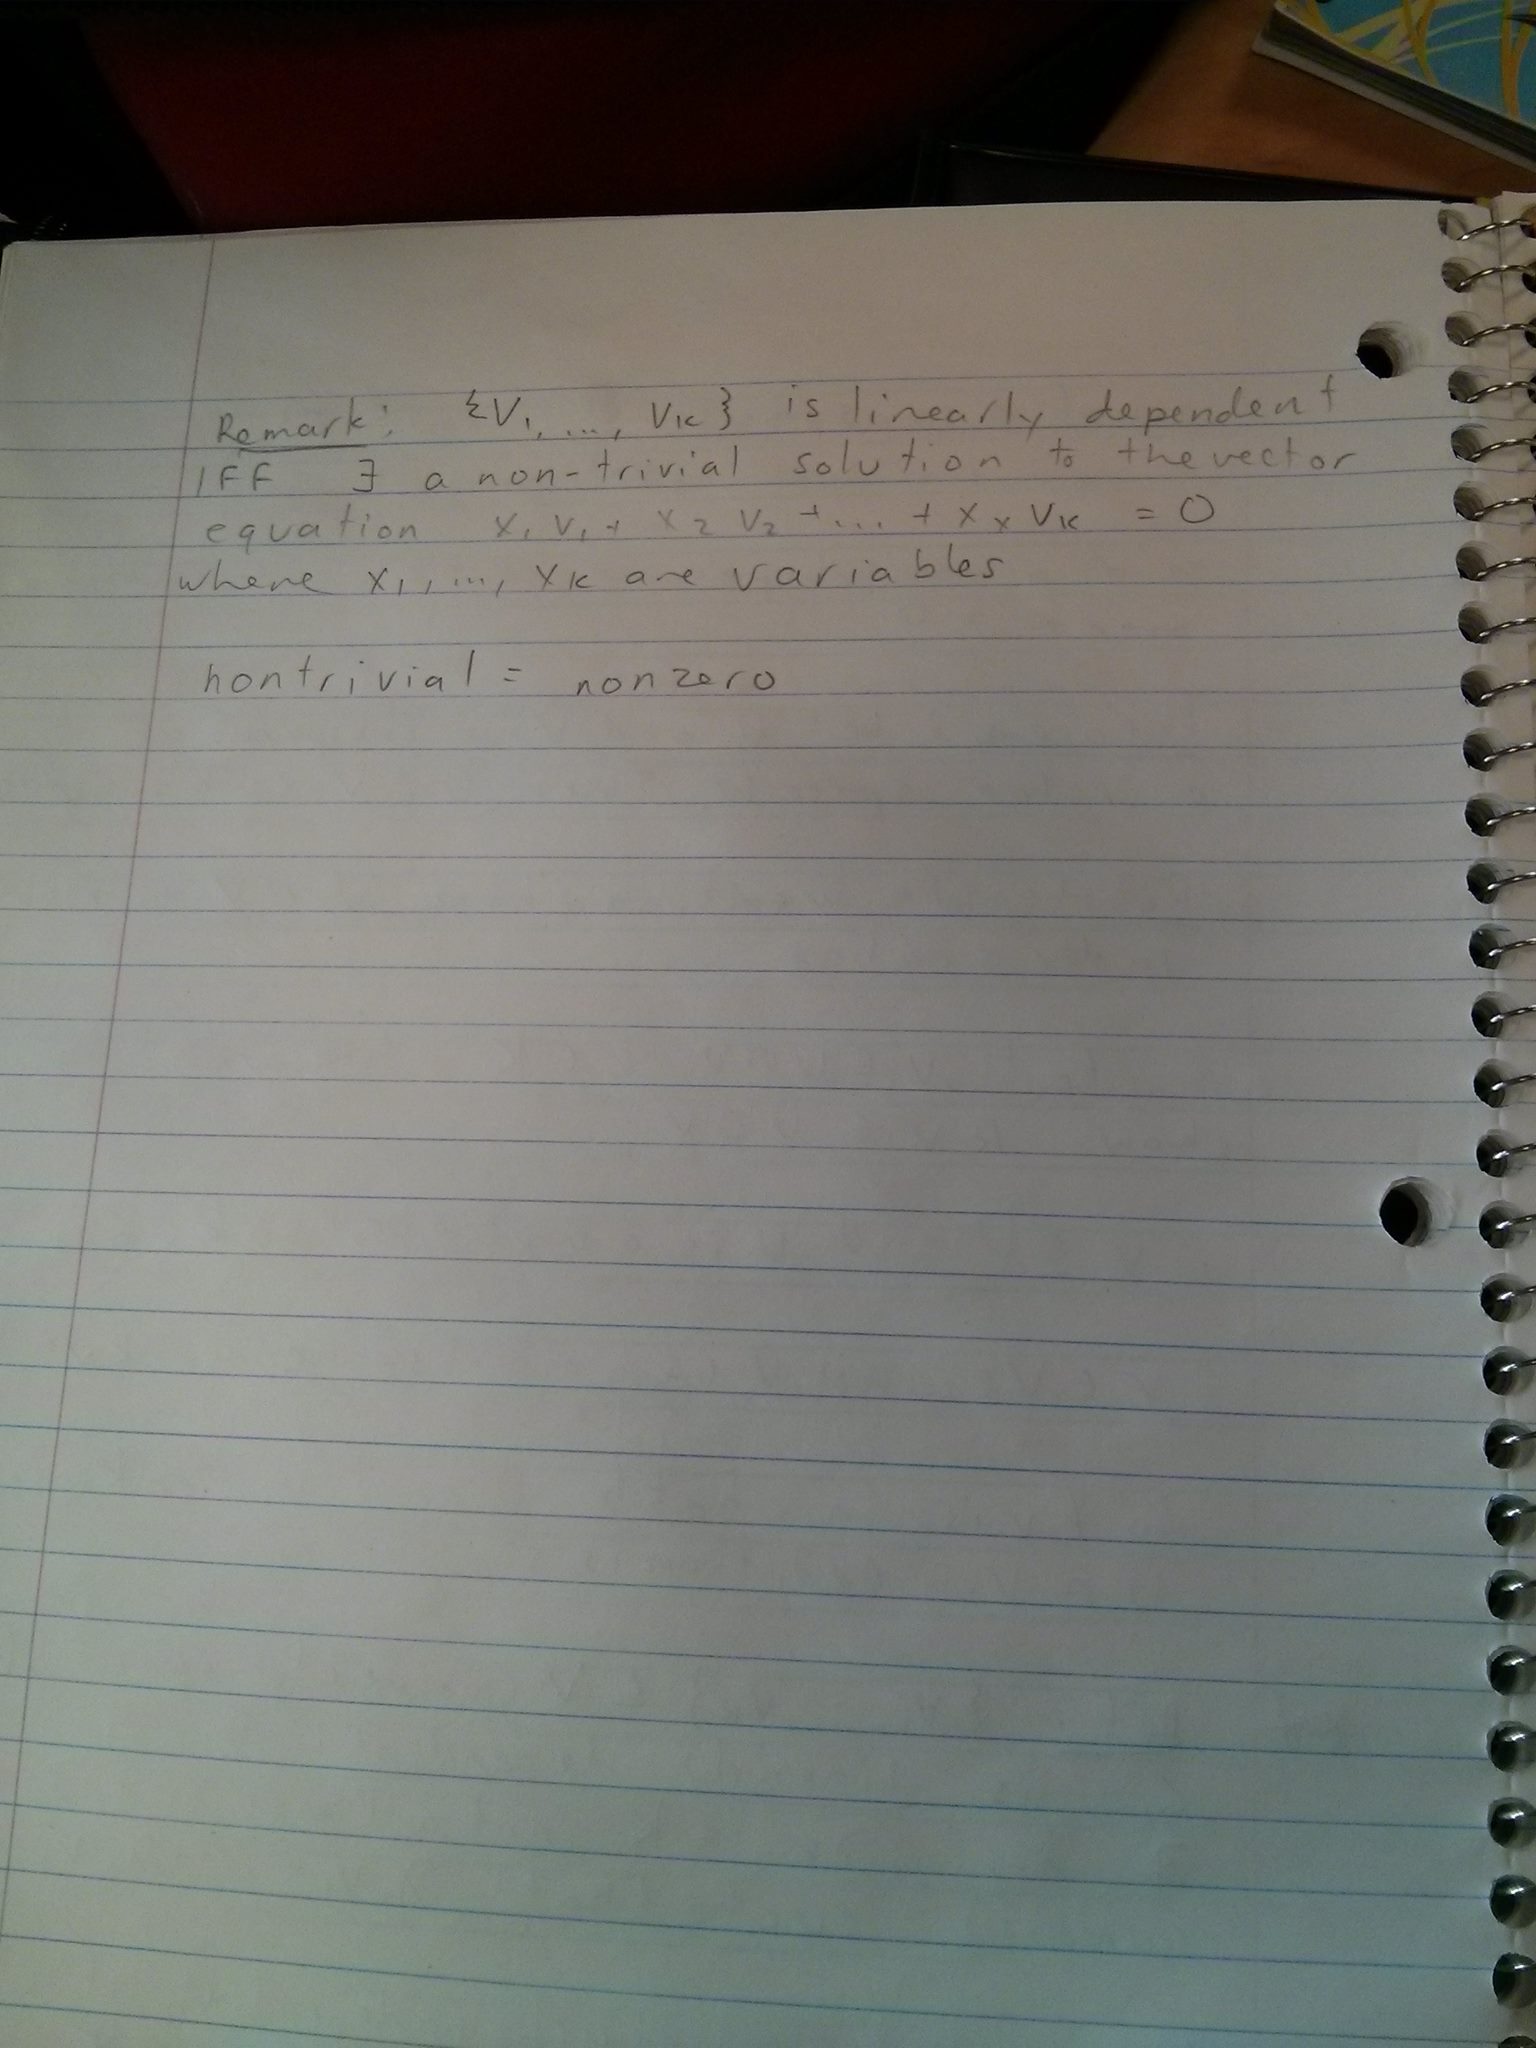 Remark: {V₁, ..., Vₖ} is linearly dependent
IFF ∃ a non-trivial solution to the vector
equation x₁ v₁ + x₂ v₂ + ... + xₓ vₖ = 0
where x₁, ..., xₖ are variables
nontrivial = nonzero